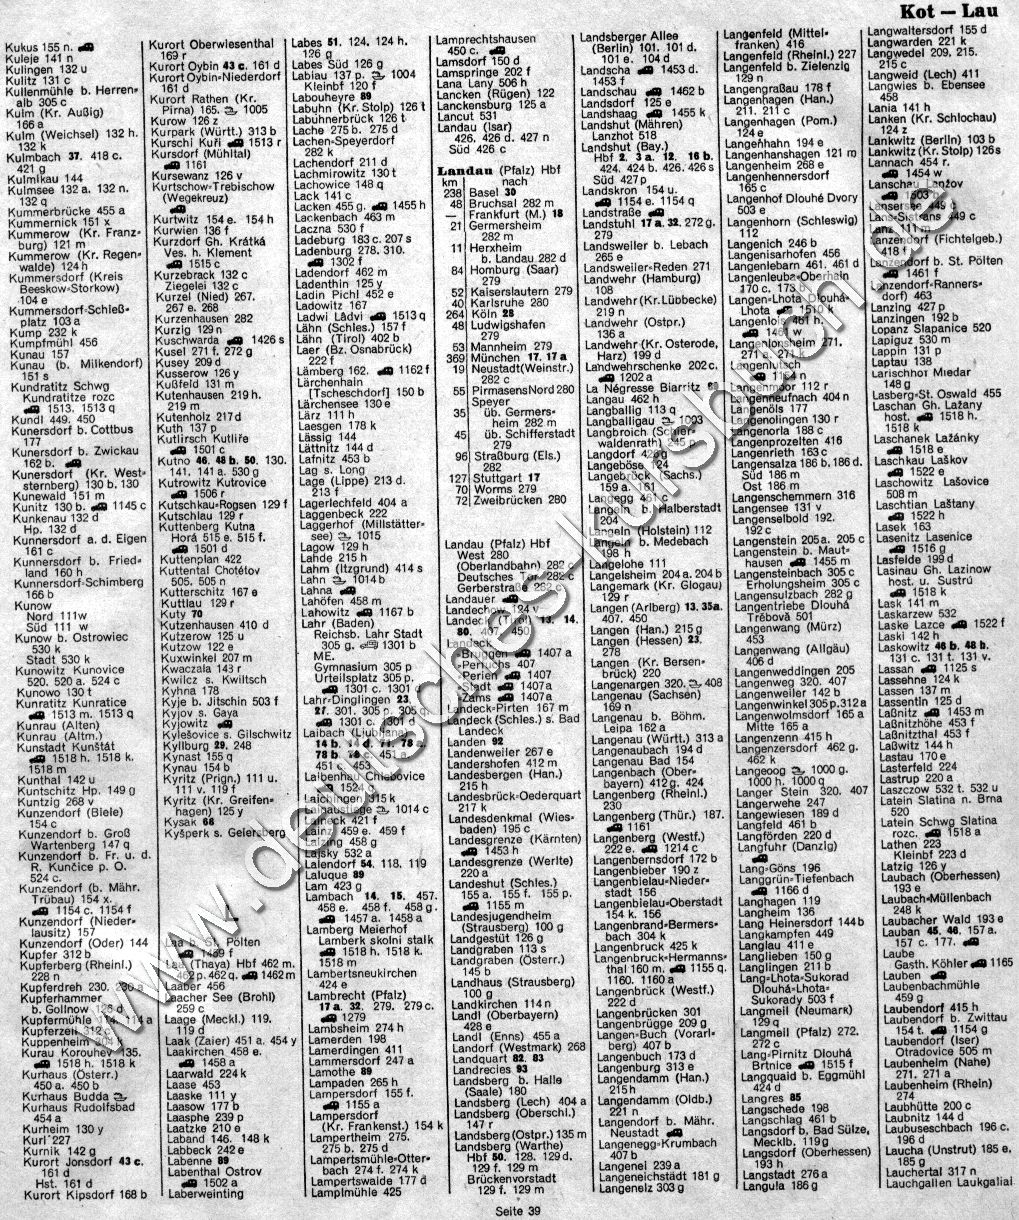 Kot – Lau
Kukus 155 n.
Kuleje 141 n
Kulingen 132 u
Kulitz 131 c
Kullenmühle b. Herren-
alb 305 c
Kulm (Kr. Außig)
166 a
Kulm (Weichsel) 132 h.
132 k
Kulmbach 37. 418 c.
421 g
Kulmikau 144
Kulmsee 132 a. 132 n.
132 q
Kummerbrücke 455 a
Kummernick 151 x
Kummerow (Kr. Franz-
burg) 121 m
Kummerow (Kr. Regen-
walde) 124 h
Kummersdorf (Kreis
Beeskow-Storkow)
104 e
Kummersdorf-Schieß-
platz 103 a
Kump 232 k
Kumpfmühl 456
Kunau 157
Kunau (b. Milkendorf)
151 s
Kundratitz Schwg
Kundratitze rozc
1513. 1513 q
Kundl 449. 450
Kunersdorf b. Cottbus
177
Kunersdorf b. Zwickau
162 b.
Kunersdorf (Kr. West-
sternberg) 130 b. 130
Kunewald 151 m
Kunitz 130 b. 1145 c
Kunkenau 132 d
Hp. 132 d
Kunnersdorf a. d. Eigen
161 c
Kunnersdorf b. Fried-
land 160 h
Kunnersdorf-Schimberg
166 b
Kunow
Nord 111 w
Süd 111 w
Kunow b. Ostrowiec
530 k
Stadt 530 k
Kunowitz Kunovice
520. 520 a. 524 c
Kunowo 130 t
Kunratitz Kunratice
1513 m. 1513 q
Kunrau (Alten)
Kunrau (Altm.)
Kunstadt Kunštát
1518 h. 1518 k.
1518 m
Kunthal 142 u
Kuntschitz Hp. 149 g
Kuntzig 268 v
Kunzendorf (Biele)
154 c
Kunzendorf b. Groß
Wartenberg 147 q
Kunzendorf b. Fr. u. d.
R. Kunčice p. O.
524 c.
Kunzendorf (b. Mähr.
Trübau) 154 x.
1154 c. 1154 f
Kunzendorf (Nieder-
lausitz) 157
Kunzendorf (Oder) 144
Kupfer 312 b
Kupferberg (Rheinl.)
228 n
Kupferdreh 230. 230 a
Kupferhammer
b. Gollnow 126 d
Kupfermühle 113. 114 a
Kupferzell 312 c
Kuppenheim 304
Kurau Korouhev 135.
1518 h. 1518 k
Kurhaus (Österr.)
450 a. 450 b
Kurhaus Budda
Kurhaus Rudolfsbad
454 a
Kurheim 130 y
Kurl 227
Kurnik 142 g
Kurort Jonsdorf 43 c.
161 d
Hst. 161 d
Kurort Kipsdorf 168 b
Kurort Oberwiesenthal
169 r
Kurort Oybin 43 c. 161 d
Kurort Oybin-Niederdorf
161 d
Kurort Rathen (Kr.
Pirna) 165. 1005
Kurow 126 z
Kurpark (Württ.) 313 b
Kurschi Kuři 1513 r
Kursdorf (Mühltal)
1161
Kursewanz 126 v
Kurtschow-Trebischow
(Wegekreuz)
Kurtwitz 154 e. 154 h
Kurwien 136 f
Kurzdorf Gh. Krátká
Ves. h. Klement
1515 c
Kurzebrack 132 c
Ziegelei 132 c
Kurzel (Nied) 267.
267 e. 268
Kurzenhausen 282
Kurzig 129 n
Kuschwarda 1426 s
Kusel 271 f. 272 g
Kusey 209 d
Kusserow 126 y
Kußfeld 131 m
Kutenhausen 219 h.
219 m
Kutenholz 217 d
Kuth 137 p
Kutlirsch Kutliře
1501 c
Kutno 46. 48 b. 50. 130.
141. 141 a. 530 g
Kutrowitz Kutrovice
1506 r
Kutschkau-Rogsen 129 f
Kutschlau 129 r
Kuttenberg Kutna
Horá 515 e. 515 f.
1501 d
Kuttenplan 422
Kuttental Chotětov
505. 505 n
Kutterschitz 167 e
Kuttlau 129 r
Kuty 70
Kutzenhausen 410 d
Kutzerow 125 u
Kutzow 122 e
Kuxwinkel 207 m
Kwaczala 143 r
Kwilcz s. Kwiltsch
Kyhna 178
Kyje b. Jitschin 503 f
Kyjov s. Gaya
Kyjowitz
Kylešovice s. Gilschwitz
Kyllburg 29. 248
Kynast 155 q
Kynau 154 b
Kyritz (Prign.) 111 u.
111 v. 119 f
Kyritz (Kr. Greifen-
hagen) 125 y
Kysak 68
Kyšperk s. Geiersberg
Laa b. St. Pölten
1459 f
Laa (Thaya) Hbf 462 m.
462 p. 462 q. 1462 m
Laaber 456
Laacher See (Brohl)
259 c
Laage (Meckl.) 119.
119 d
Laak (Zaier) 451 a. 454 y
Laakirchen 458 e.
1458 a
Laarwald 224 k
Laase 453
Laaske 111 y
Laasow 177 b
Laasphe 239 p
Laatzke 210 e
Laband 146. 148 k
Labbeck 242 e
Labenne 89
Labenthal Ostrov
1502 a
Laberweinting
Labes 51. 124. 124 h.
126 g
Labes Süd 126 g
Labiau 137 p. 1004
Kleinbf 120 f
Labouheyre 89
Labuhn (Kr. Stolp) 126 t
Labuhnerbrück 126 t
Lache 275 b. 275 d
Lachen-Speyerdorf
282 k
Lachendorf 211 d
Lachmirowitz 130 t
Lachowice 148 q
Lack 141 c
Lacken 455 g. 1455 h
Lackenbach 463 m
Laczna 530 f
Ladeburg 183 c. 207 s
Ladenburg 278. 310.
1302 f
Ladendorf 462 m
Ladenthin 125 y
Ladin Pichl 452 e
Ladowitz 167
Ladwi Lådvi 1513 q
Lähn (Schles.) 157 f
Lähn (Tirol) 402 b
Laer (Bz. Osnabrück)
222 f
Lämberg 162. 1162 f
Lärchenhain
[Tscheschdorf] 150 b
Lärchensee 130 e
Lärz 111 h
Laesgen 178 k
Lässig 144
Lättnitz 144 d
Lafnitz 453 b
Lag s. Long
Lage (Lippe) 213 d.
213 f
Lagerlechfeld 404 a
Laggenbeck 222
Laggerhof (Millstätter-
see) 1015
Lagow 129 h
Lahde 215 h
Lahm (Itzgrund) 414 s
Lahn 1014 b
Lahna
Lahöfen 458 m
Lahowitz 1167 b
Lahr (Baden)
Reichsb. Lahr Stadt
305 g. 1301 b
ME.
Gymnasium 305 p
Urteilsplatz 305 p.
1301 c. 1301 d
Lahr-Dinglingen 23.
27. 301. 305 p. 306 q.
1301 c. 1301 d
Laibach (Ljubljana)
14 b.
78 b 451 a
451 c. 453
Laibenhau Chlebovice
1524
Laichingen 315 k
1014 c
421 f
Laing 459 e. 459 f
458 g
Lajsky 532 a
Lalendorf 54. 118. 119
Laluque 89
Lam 423 g
Lambach 14. 15. 457.
458 e. 458 f. 458 g.
1457 a. 1458 a
Lamberg Meierhof
Lamberk skolni stalk
1518 h. 1518 k.
1518 m
Lambertsneukirchen
424 e
Lambrecht (Pfalz)
17 a. 32. 279. 279 c.
1279
Lambsheim 274 h
Lamerden 198
Lamerdingen 411
Lammersdorf 247 a
Lamothe 89
Lampaden 265 h
Lampersdorf 155 f.
1155 a
Lampersdorf
(Kr. Frankenst.) 154 k
Lampertheim 275.
275 b. 275 d
Lampertsmühle-Otter-
bach 274 f. 274 k
Lampertswalde 177 d
Lamplmühle 425
Lamprechtshausen
450 c.
Lamsdorf 150 d
Lamspringe 202 f
Lana Lany 506 h
Lancken (Rügen) 122
Lanckensburg 125 a
Lancut 531
Landau (Isar)
426. 426 d. 427 n
Süd 426 c
Landau (Pfalz) Hbf
km nach
238 Basel 30
48 Bruchsal 282 m
— Frankfurt (M.) 18
21 Germersheim
282 m
11 Herxheim
b. Landau 282 d
84 Homburg (Saar)
279
52 Kaiserslautern 279
40 Karlsruhe 280
264 Köln 28
48 Ludwigshafen
279
63 Mannheim 279
369 München 17. 17 a
19 Neustadt(Weinstr.)
282 c
55 Pirmasens Nord 280
Speyer
35 üb. Germers-
heim 282 m
45 üb. Schifferstadt
279
96 Straßburg (Els.)
282
127 Stuttgart 17
70 Worms 279
72 Zweibrücken 280
Landau (Pfalz) Hbf
West 280
(Oberlandbahn) 282
Deutsches Tor 282 c
Gerberstraße 282 c
Landauer
Landechow 124 v
Landeck (Tirol) 13. 14.
80. 407. 450
Landeck
-Bruggen 1407 a
-Perjens 407
-Perjen 1407
-Stadt 1407 a
-Zams 1407 a
Landeck-Pirten 167 m
Landeck (Schles.) s. Bad
Landeck
Landen 92
Landenweiler 267 e
Landershofen 412 m
Landesbergen (Han.)
215 h
Landesbrück-Oederquart
217 k
Landesdenkmal (Wies-
baden) 195 c
Landesgrenze (Kärnten)
1453 h
Landesgrenze (Werlte)
220 a
Landeshut (Schles.)
155 a. 155 f. 155 p.
1155 m
Landesjugendheim
(Strausberg) 100 g
Landgestüt 126 g
Landgraben 113 s
Landgraben (Österr.)
145 b
Landhaus (Strausberg)
100 g
Landkirchen 114 n
Landl (Oberbayern)
428 e
Landl (Enns) 455 a
Landorf (Westmark) 268
Landquart 82. 83
Landrecies 93
Landsberg b. Halle
(Saale) 180
Landsberg (Lech) 404 a
Landsberg (Oberschl.)
147 r
Landsberg (Ostpr.) 135 m
Landsberg (Warthe)
Hbf 50. 128. 129 d.
129 f. 129 m
Brückenvorstadt
129 f. 129 m
Landsberger Allee
(Berlin) 101. 101 d.
101 e. 104 d
Landscha 1453 d.
1453 f
Landschau 1462 b
Landsdorf 125 e
Landshaag 1455 k
Landshut (Mähren)
Lanzhot 518
Landshut (Bay.)
Hbf 2. 3 a. 12. 16 b.
424. 424 b. 426. 426 s
Süd 427 p
Landskron 154 u.
1154 e. 1154 q
Landstraße
Landstuhl 17 a. 32. 272 g.
271
Landsweiler b. Lebach
265 e
Landsweiler-Reden 271
Landwehr (Hamburg)
108
Landwehr (Kr. Lübbecke)
219 n
Landwehr (Ostpr.)
136 a
Landwehr (Kr. Osterode,
Harz) 199 d
Landwehrschenke 202 c.
1202 a
La Négresse Biarritz 89
Langau 462 h
Langballig 113 q
Langballigau 1003
Langbroich (Schier-
waldenrath) 245 p
Langdorf 426 g
Langeböse 124
Langebrück (Sachs.)
159 a. 161
Langegg 461 c
Langeln b. Halberstadt
204
Langeln (Holstein) 112
Langeln b. Medebach
198 h
Langelohe 111
Langelsheim 204 a. 204 b
Langemark (Kr. Glogau)
129 r
Langen (Arlberg) 13. 35a.
407. 450
Langen (Han.) 215 g
Langen (Hessen) 23.
278
Langen (Kr. Bersen-
brück) 220
Langenargen 320. 408
Langenau (Sachsen)
169 n
Langenau b. Böhm.
Leipa 162 a
Langenau (Württ.) 313 a
Langenaubach 194 d
Langenau Bad 154
Langenbach (Ober-
bayern) 412 g. 424
Langenberg (Rheinl.)
230
Langenberg (Thür.) 187.
1161
Langenberg (Westf.)
222 e. 1214 c
Langenbernsdorf 172 b
Langenbieber 190 z
Langenbielau-Nieder-
stadt 156
Langenbielau-Oberstadt
154 k. 156
Langenbrand-Bermers-
bach 304 k
Langenbruck 425 k
Langenbruck-Hermanns-
thal 160 m. 1155 q.
1160. 1160 a
Langenbrück (Westf.)
222 d
Langenbrücken 301
Langenbrügge 209 g
Langen-Buch (Vorarl-
berg) 407 b
Langenbuch 173 d
Langenburg 313 e
Langendamm (Han.)
215 h
Langendamm (Oldb.)
221 n
Langendorf b. Mähr.
Neustadt
Langenegg-Krumbach
407 b
Langenei 239 a
Langeneichstädt 181 g
Langenelz 303 g
Langenfeld (Mittel-
franken) 416
Langenfeld (Rheinl.) 227
Langenfeld b. Zielenzig
129 n
Langengraßau 178 f
Langenhagen (Han.)
211. 211 c
Langenhagen (Pom.)
124 e
Langenhahn 194 e
Langenhanshagen 121 m
Langenheim 268 e
Langenhennersdorf
165 c
Langenhof Dlouhé Dvory
503 e
Langenhorn (Schleswig)
112
Langenich 246 b
Langenisarhofen 456
Langenlebarn 461. 461 d
Langenleuba-Oberhain
170 c. 173
Langen-Lhota Dlouhá-
Lhota 1510 k
Langenlois 461 h.
1461 w
Langenlonsheim 271.
271
Langenlutsch
Langenmoor 112 r
Langenneufnach 404 n
Langenöls 177
Langenolingen 130 r
Langenorla 188 c
Langenprozelten 416
Langenrieth 163 c
Langensalza 186 b. 186 d.
Süd 186 m
Ost 186 m
Langenschemmern 316
Langensee 131 v
Langenselbold 192.
192 c
Langenstein 205 a. 205 c
Langenstein b. Maut-
hausen 1455 m
Langensteinbach 305 c
Erholungsheim 305 c
Langensulzbach 282 g
Langentriebe Dlouhá
Třebová 501
Langenwang (Mürz)
453
Langenwang (Allgäu)
406 d
Langenweddingen 205
Langenweg 320. 407
Langenweiler 142 b
Langenwinkel 305 p. 312 a
Langenwolmsdorf 165 a
Mitte 165 a
Langenzenn 415 h
Langenzersdorf 462 g.
462 k
Langeoog 1000 g.
1000 h. 1000 q
Langer Stein 320. 407
Langerwehe 247
Langewiesen 189 d
Langfeld 461 b
Langförden 220 d
Langfuhr (Danzig)
Lang-Göns 196
Langgrün-Tiefenbach
1166 d
Langhagen 119
Langheim 136
Lang Heinersdorf 144 b
Langkampfen 449
Langlau 411 e
Langlieben 150 g
Langlingen 211 b
Lang-Lhota-Sukorad
Dlouhá-Lhota-
Sukorady 503 f
Langmeil (Neumark)
129 q
Langmeil (Pfalz) 272.
272 c
Lang-Pirnitz Dlouhá
Brtnice 1515 f
Langquaid b. Eggmühl
424 d
Langres 85
Langschede 198
Langschlag 461 b
Langsdorf b. Bad Sülze,
Mecklb. 119 g
Langsdorf (Oberhessen)
193 h
Langstadt 276 a
Langula 186 g
Langwaltersdorf 155 d
Langwarden 221 k
Langwedel 209. 215.
215 c
Langweid (Lech) 411
Langwies b. Ebensee
458
Lania 141 h
Lanken (Kr. Schlochau)
124 z
Lankwitz (Berlin) 103 b
Lankwitz (Kr. Stolp) 126 s
Lannach 454 r.
1454 w
Lanschau Lanžov
1503
Lansersee 449
Lans-Sistrans 449 c
Lanz 111
Lanzendorf (Fichtelgeb.)
418 f
Lanzendorf b. St. Pölten
1461 f
Lanzendorf-Ranners-
dorf) 463
Lanzing 427 p
Lanzingen 192 b
Lopanz Slapanice 520
Lapiguz 530 m
Lappin 131 p
Laptau 138
Larischhof Miedar
148 g
Lasberg-St. Oswald 455
Laschan Gh. Lažany
host. 1518 h.
1518 k
Laschanek Lažánky
1518 e
Laschkau Laškov
1522 e
Laschowitz Lašovice
508 m
Laschtian Laštany
1522 h
Lasek 163
Lasenitz Lasenice
1516 g
Lasfelde 199 d
Lasinau Gh. Lazinow
host. u. Sustrú
1518 k
Lask 141 m
Laskarzew 532
Laske Lazce 1522 f
Laski 142 h
Laskowitz 46 b. 48 b.
131 c. 131 t. 131 v.
Lassan 1125 s
Lassehne 124 k
Lassen 137 m
Lassentin 125 d
Laßnitz 1453 m
Laßnitzhöhe 453 f
Laßnitzthal 453 f
Laßwitz 144 h
Lastau 170 e
Lasterfeld 224
Lastrup 220 a
Laszczow 532 t. 532 u
Latein Slatina n. Brna
520
Latein Schwg Slatina
rozc. 1518 a
Lathen 223
Kleinbf 223 d
Latzig 126 y
Laubach (Oberhessen)
193 e
Laubach-Müllenbach
248 k
Laubacher Wald 193 e
Lauban 45. 46. 157 a.
157 c. 177.
Laube
Gasth. Köhler 1165
Lauben
Laubenbachmühle
459 g
Laubendorf 415 h
Laubendorf b. Zwittau
154 t. 1154 g
Laubendorf (Iser)
Otradovice 505 m
Laubenheim (Nahe)
271. 271 a
Laubenheim (Rhein)
274
Laubhütte 200 c
Laubnitz 144 d
Laubuseschbach 196 c.
196 d
Laucha (Unstrut) 185 e.
185 g
Lauchertal 317 n
Lauchgallen Laukgaliai
www.deutsches-kursbuch.de
Seite 39